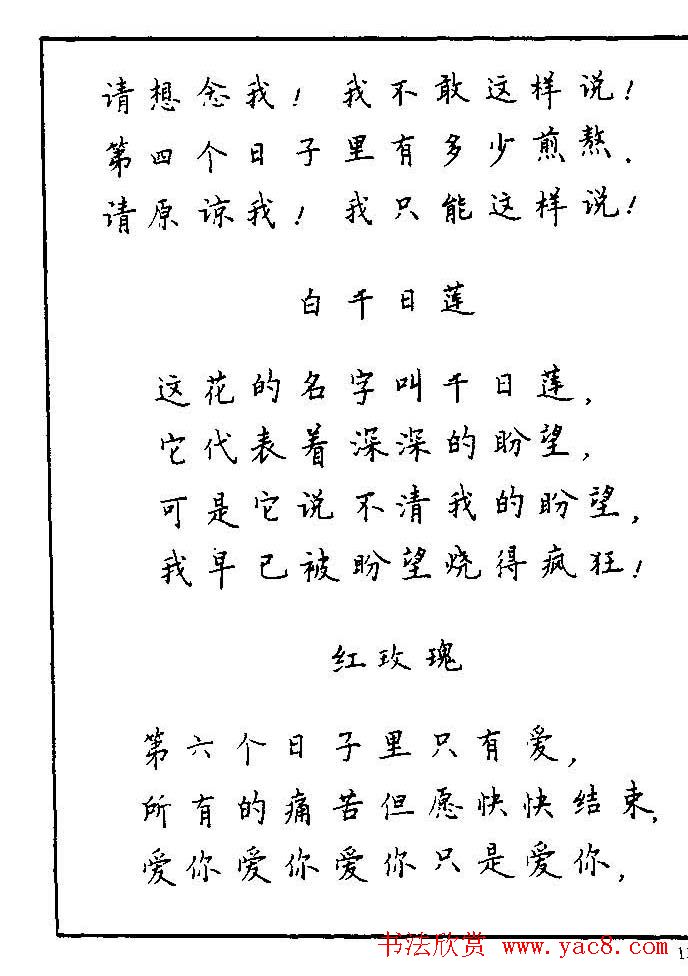 请想念我！我不敢这样说！
第四个日子里有多少煎熬．
请原谅我！我只能这样说！
白千日莲
这花的名字叫千日莲，
它代表着深深的盼望，
可是它说不清我的盼望，
我早已被盼望烧得疯狂！
红玫瑰
第六个日子里只有爱，
所有的痛苦但愿快快结束，
爱你爱你爱你只是爱你，
书法欣赏 www.yac8.com